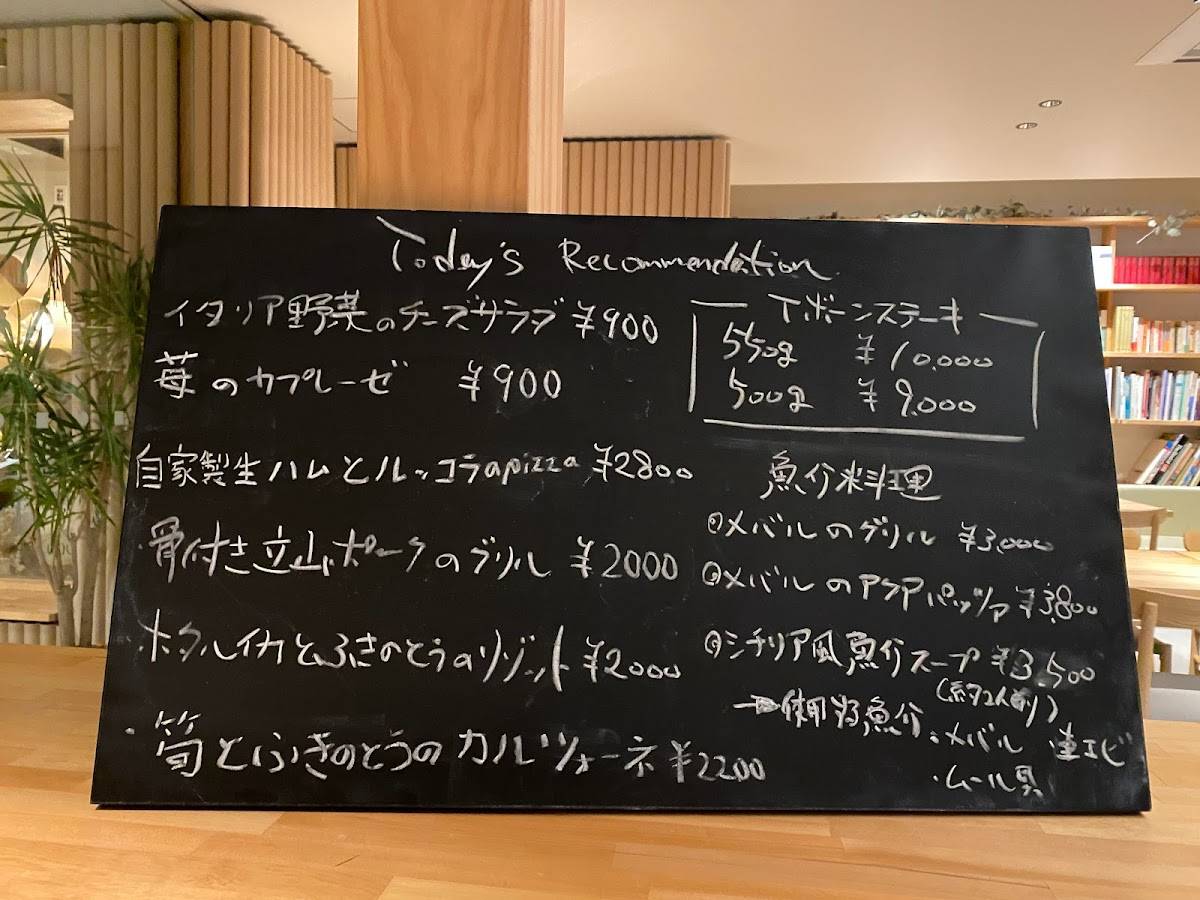 Today's Recommendation
イタリア野菜のチーズサラダ ¥900
苺のカプレーゼ ¥900
自家製生ハムとルッコラのpizza ¥2800
・骨付き立山ポークのグリル ¥2000
・ホタルイカとふきのとうのリゾット ¥2000
・筍とふきのとうのカルツォーネ ¥2200
Tボーンステーキ
550g ¥10.000
500g ¥9.000
魚介料理
◎メバルのグリル ¥3,000
◎メバルのアクアパッツァ ¥3.800
◎シチリア風魚介スープ ¥3,500
(約2人前)
使用魚介:メバル エビ
・ムール貝